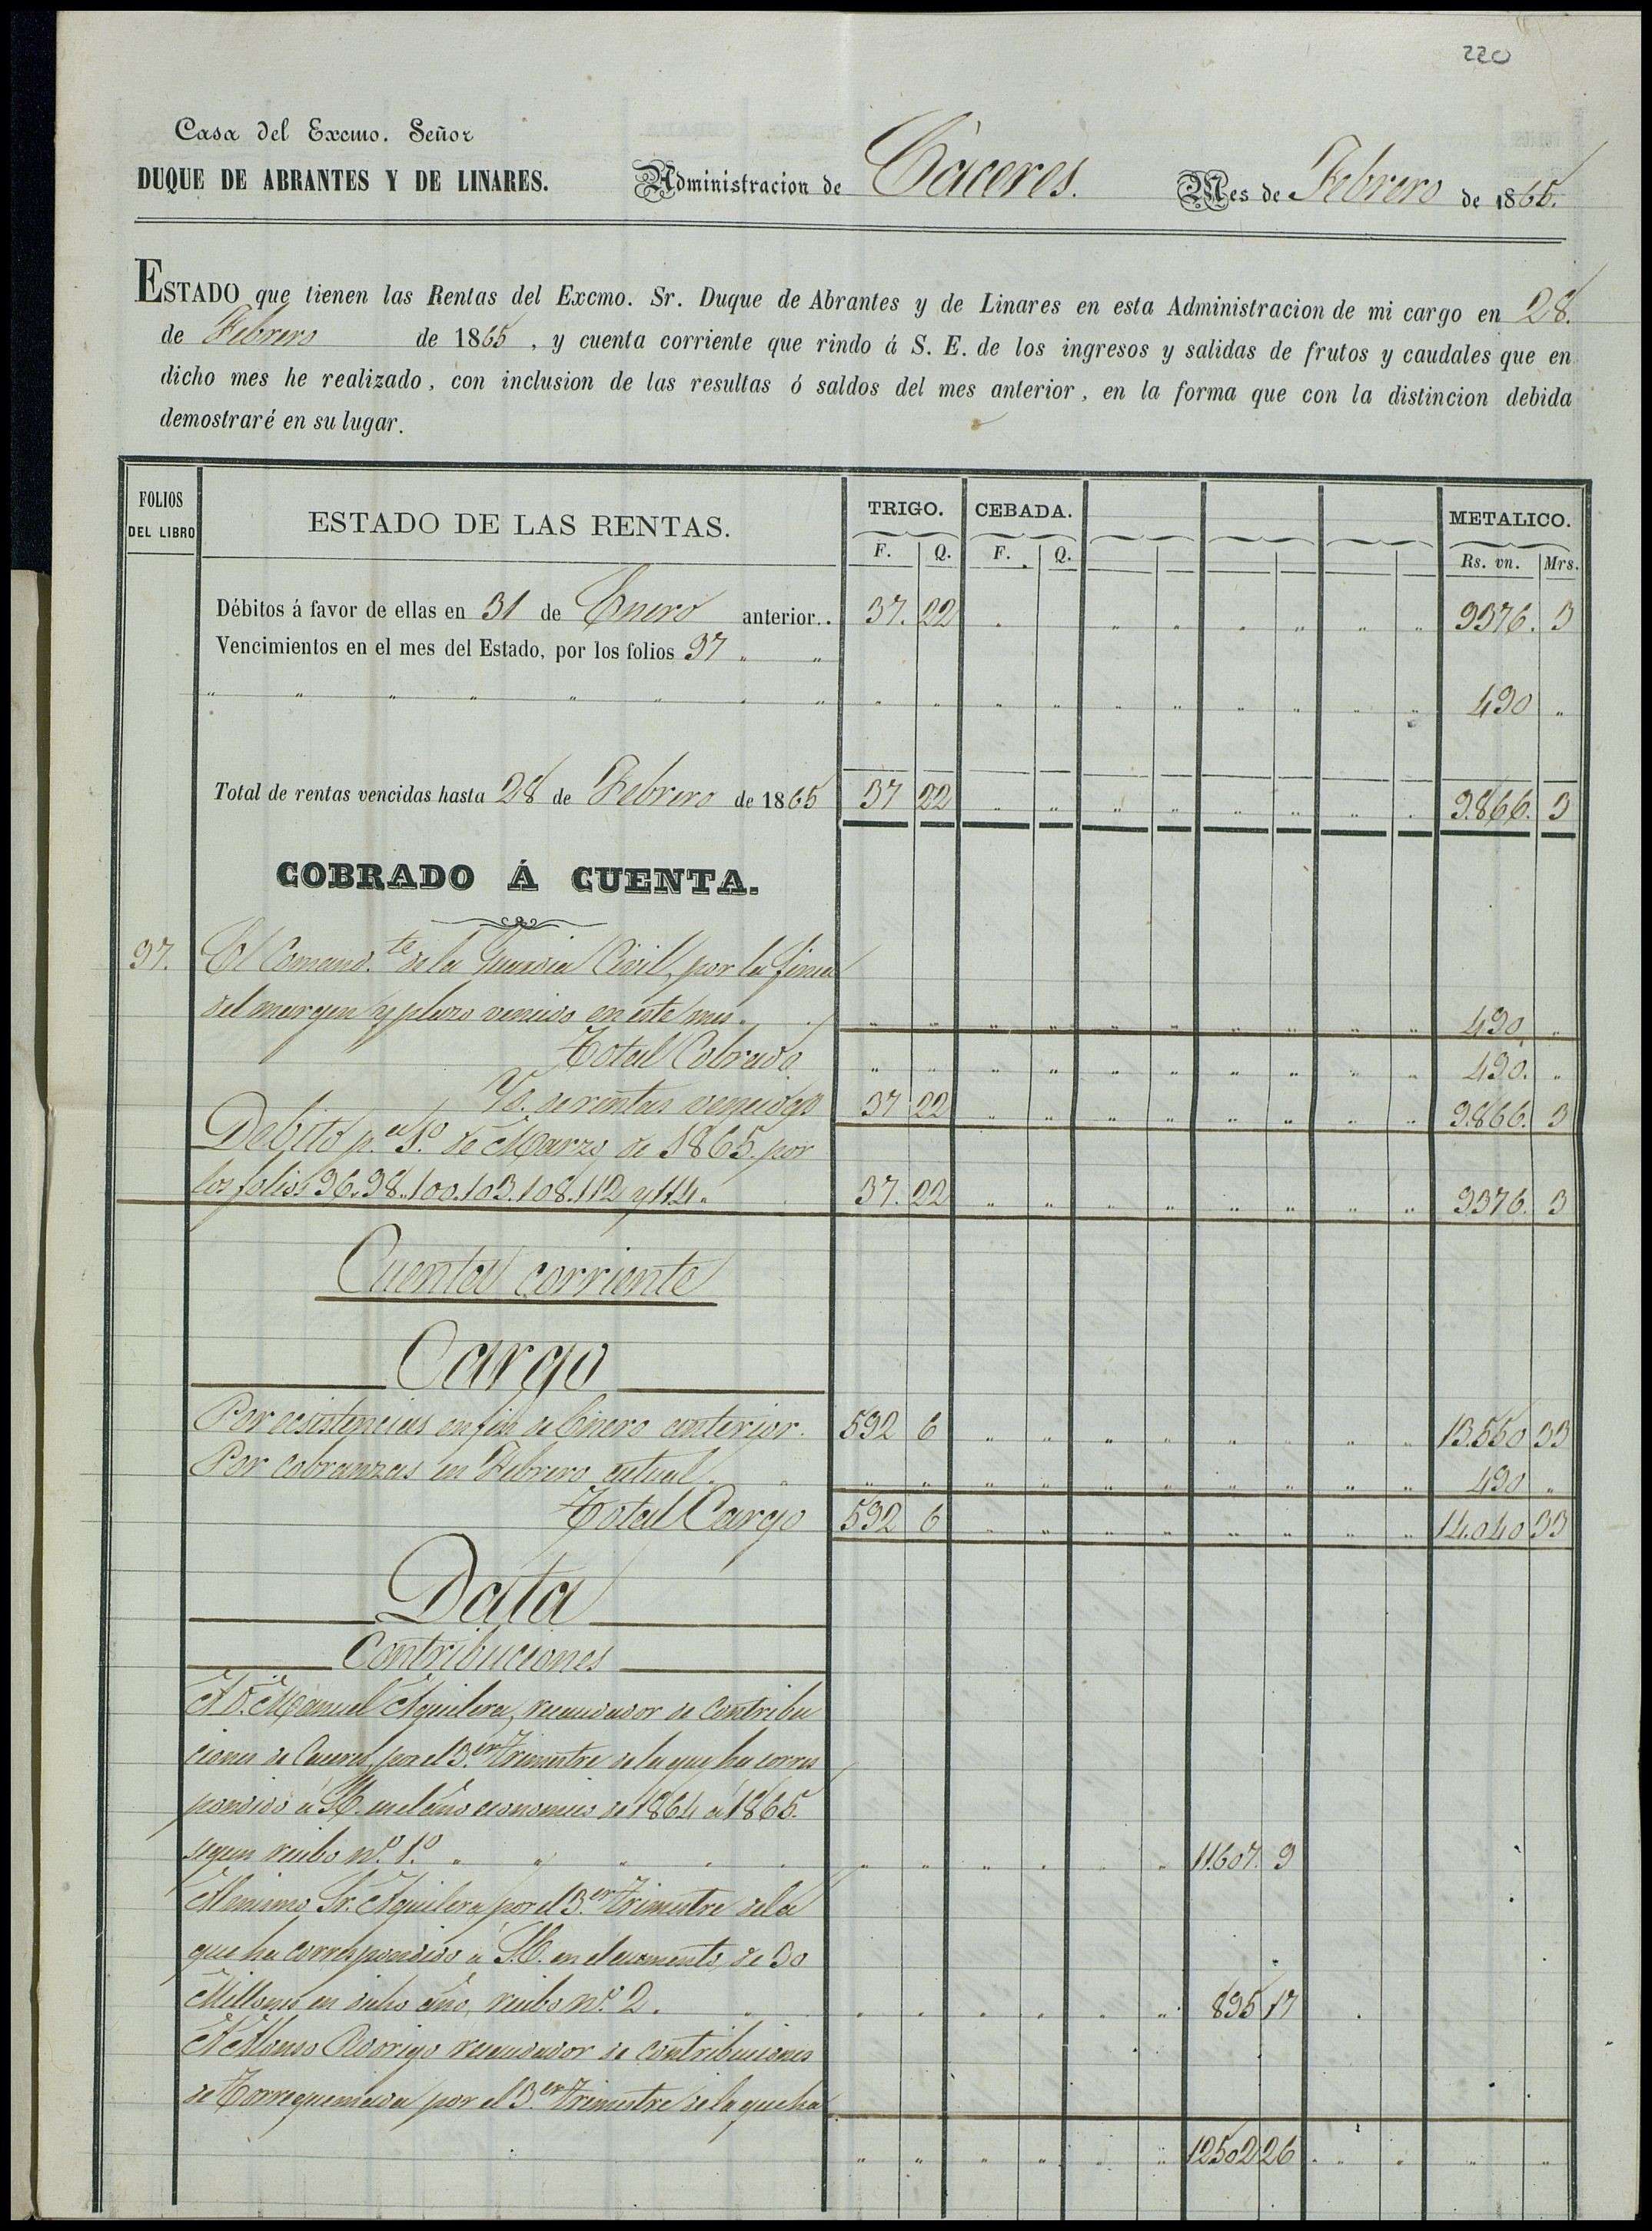 220
Casa del Excmo. Señor
DUQUE DE ABRANTES Y DE LINARES. Administracion de Cáceres. Mes de Febrero de 1865.
ESTADO que tienen las Rentas del Excmo. Sr. Duque de Abrantes y de Linares en esta Administracion de mi cargo en 28.
de Febrero de 1865, y cuenta corriente que rindo á S. E. de los ingresos y salidas de frutos y caudales que en
dicho mes he realizado, con inclusion de las resultas ó saldos del mes anterior, en la forma que con la distincion debida
demostraré en su lugar.
FOLIOS DEL LIBRO ESTADO DE LAS RENTAS. TRIGO. CEBADA. METALICO.
F. Q. F. Q. Rs. vn. Mrs.
Débitos á favor de ellas en 31 de Enero anterior.. 37. 22 " " " " " " " 9376. 3
Vencimientos en el mes del Estado, por los folios 97 " "
" " " " " " " " " " " " " " " " " " 490 "
Total de rentas vencidas hasta 28 de Febrero de 1865 37 22 " " " " " " " " 9.866. 3
COBRADO Á CUENTA.
97. El Comand.te de la Guardia Civil, por la finca
del margen y plazo vencido en este mes. " " " " " " " " " " 490 "
Total Cobrado " " " " " " " " " " 490. "
Yd. de rentas vencidas 37 22 " " " " " " " " 9.866. 3
Debito p.a 1.o de Marzo de 1865. por
los folios 96. 98. 100. 103. 108. 112 y 114. 37. 22 " " " " " " " " 9.376. 3
Cuenta corriente
Cargo
Por ecsistencias en fin de Enero anterior. 592 6 " " " " " " " " 13.550 33
Por cobranzas en Febrero actual. " " " " " " " " " " " 490 "
Total Cargo 592 6 " " " " " " " " 14.040 33
Data
Contribuciones
A D. Manuel Aguilera, recaudador de Contribu
ciones de Caceres, por el 3.er Trimestre de la que ha corres
pondido á S.E. en el año economico de 1864 á 1865.
segun recibo n.o 1.o " " " " " " " " " " " 11.607. 9
Al mismo Sr. Aguilera por el 3.er Trimestre dela
que ha correspondido á S.E. en el aumento, de 30
Millones en dicho año, recibo n.o 2. " " " " " " " 895 17
A Alonso Rodrigo recaudador de contribuciones
de Torrequemada por el 3.er Trimestre de la que ha
" " " " " " 12502 26 " " " " "